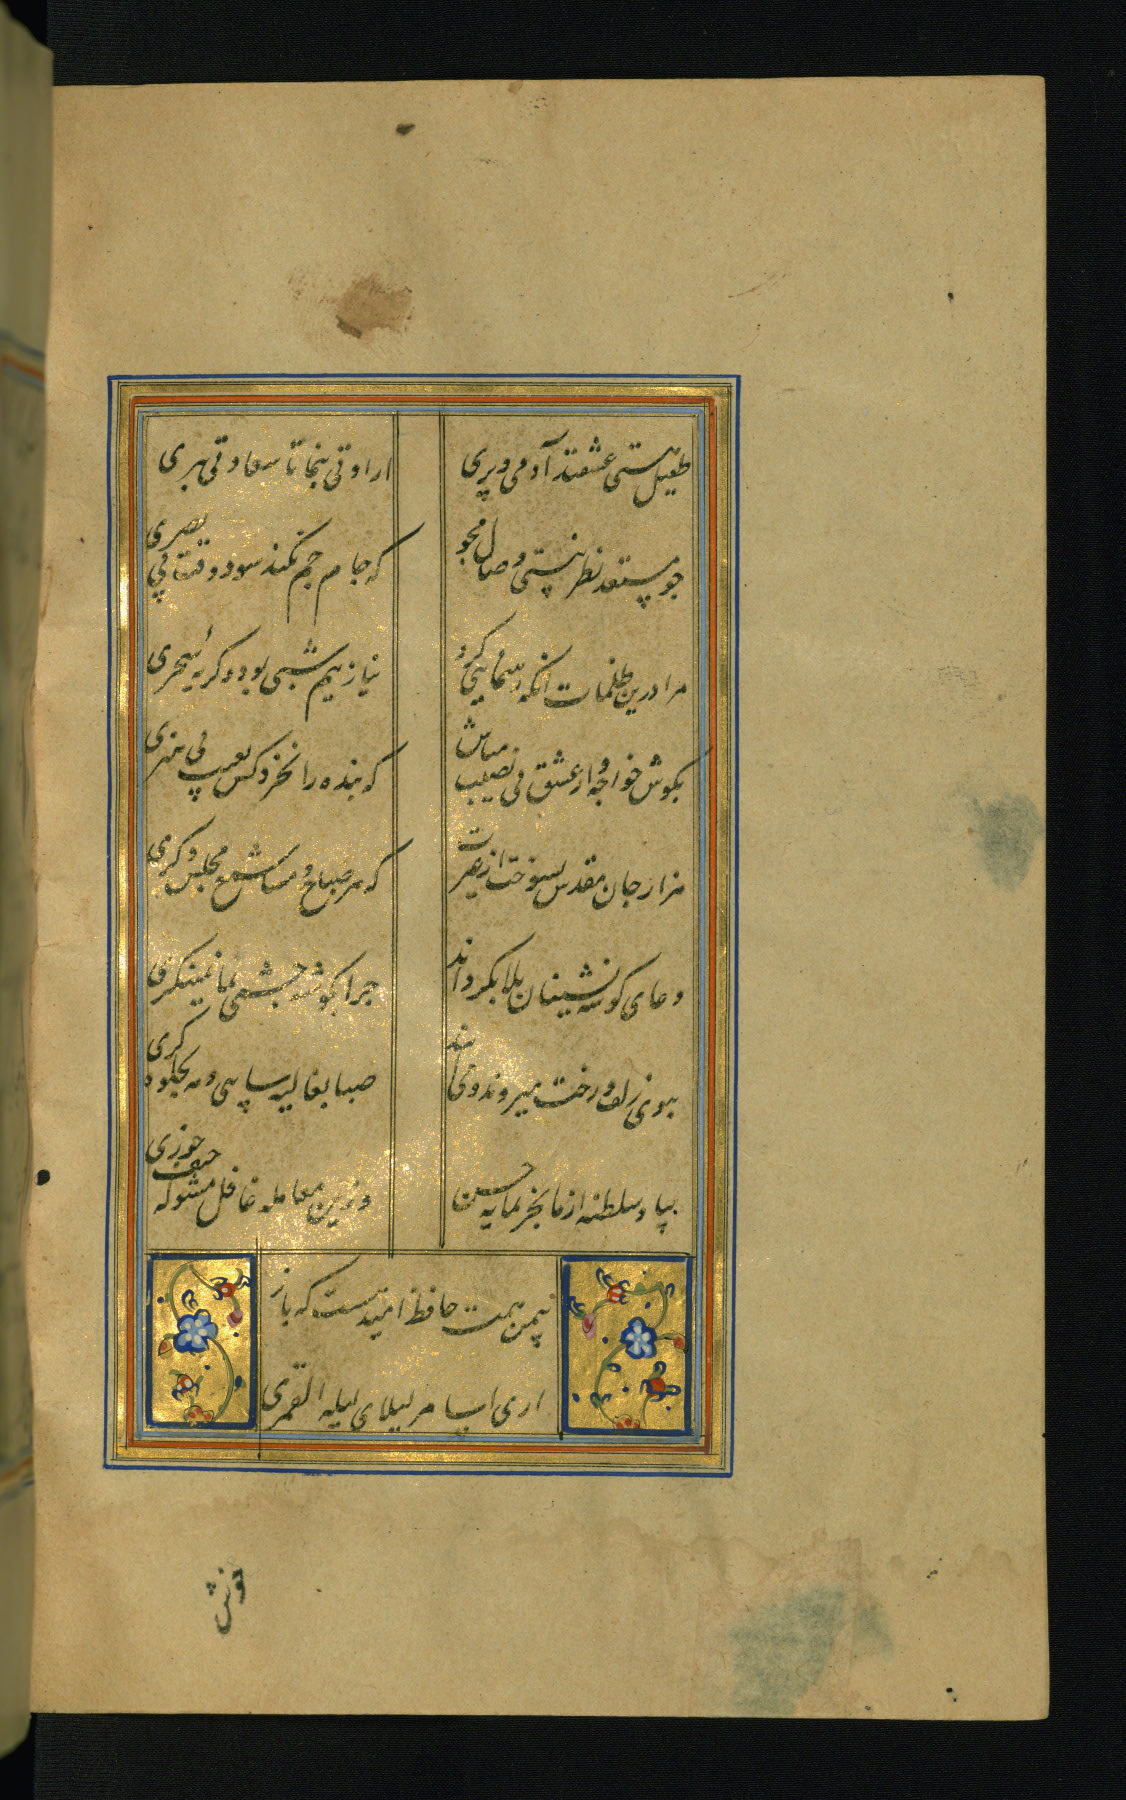 طفیل هستی عشقند آدمی و پری
ارادتی بنما تا سعادتی ببری
چو مستعد نظر نیستی وصال مجو
که جام جم نکند سود وقت بی بصری
مرا درین ظلمات انکه رهنمایی کرد
نیاز نیم شبی بود و کریه سحری
بکوش خواجه و از عشق بی نصیب مباش
که بنده را نخرد کس بعیب بی هنری
هزار جان مقدس بسوخت ازین غیرت
که هر صباح و مسا شمع مجلس دکری
دعای کوشه نشینان بلا بکرداند
چرا بکوشه چشمی بما نمینکری
ببوی زلف و رخت میروند و می ایند
صبا بغالیه سایی و مه بجلوه کری
بیا و سلطنه از ما بخر بمایه حسن
وزین معامله غافل مشو که حیف خوری
بیمن همت حافظ امید هست که باز
اری اسامر لیلای لیله القمری